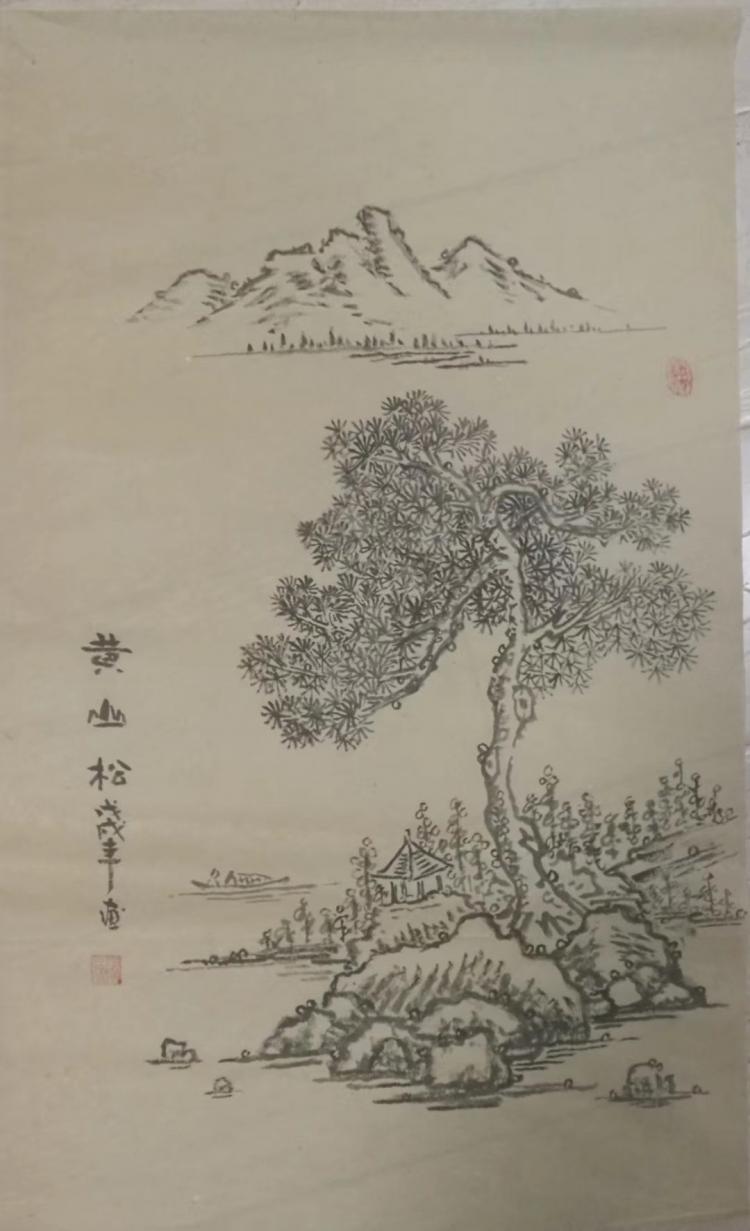 黄山松戊戌年畫